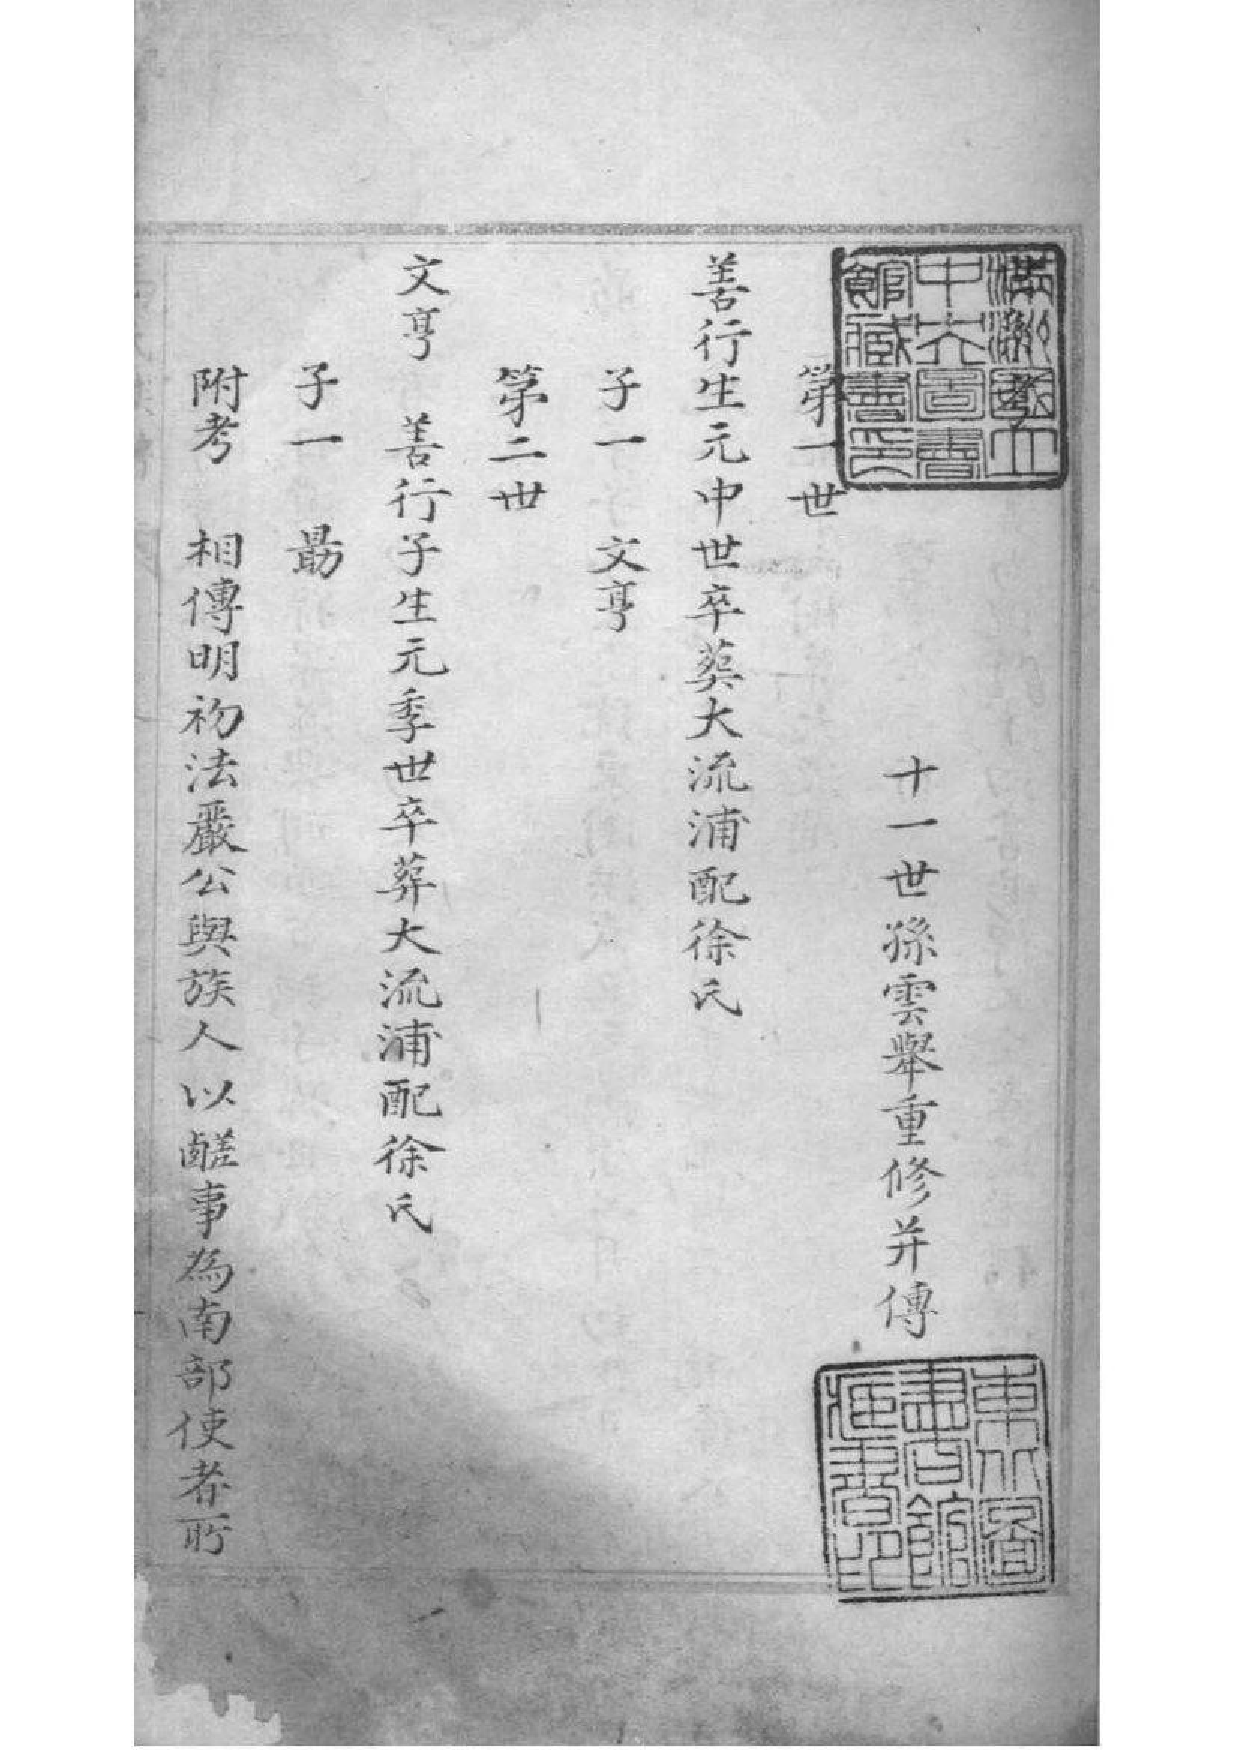 滿洲國立
中央圖書
館藏書印
十一世孫雲舉重修并傳
東北圖
書館
藏書印
第一世
善行生元中世卒葬大流浦配徐氏
子一 文亨
第二世
文亨 善行子生元季世卒葬大流浦配徐氏
子一 勗
附考 相傳明初法嚴公與族人以鹺事為南部使者所